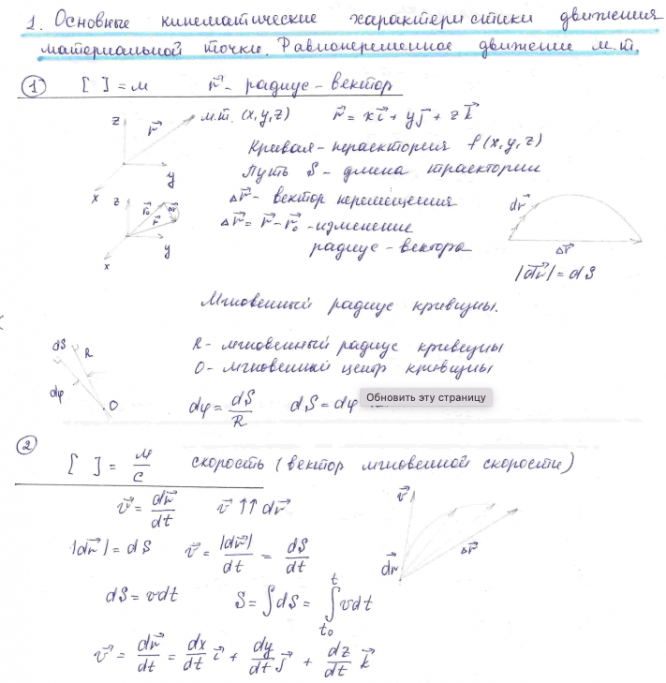 1. Основные кинематические характеристики движения
материальной точки. Равнопеременное движение м.т.
① [ ] = м r⃗ - радиус-вектор
z r⃗ м.т. (x,y,z) r⃗ = xi⃗ + yj⃗ + zk⃗
y
x
Кривая - траектория f(x,y,z)
Путь S - длина траектории
z r⃗₀ r⃗ Δr⃗
y
x
Δr⃗ - вектор перемещения
Δr⃗ = r⃗ - r⃗₀ - изменение
радиус-вектора
dr⃗
Δr⃗
|dr⃗| = dS
Мгновенный радиус кривизны.
dS R
dφ
O
R - мгновенный радиус кривизны
O - мгновенный центр кривизны
dφ = dS/R dS = dφ
Обновить эту страницу
② [ ] = м/с скорость (вектор мгновенной скорости)
v⃗ = dr⃗/dt v⃗ ↑↑ dr⃗
|dr⃗| = dS v⃗ = |dr⃗|/dt = dS/dt
v⃗
dr⃗ Δr⃗
dS = vdt S = ∫dS = ∫ₜ₀ᵗ vdt
v⃗ = dr⃗/dt = dx/dt i⃗ + dy/dt j⃗ + dz/dt k⃗